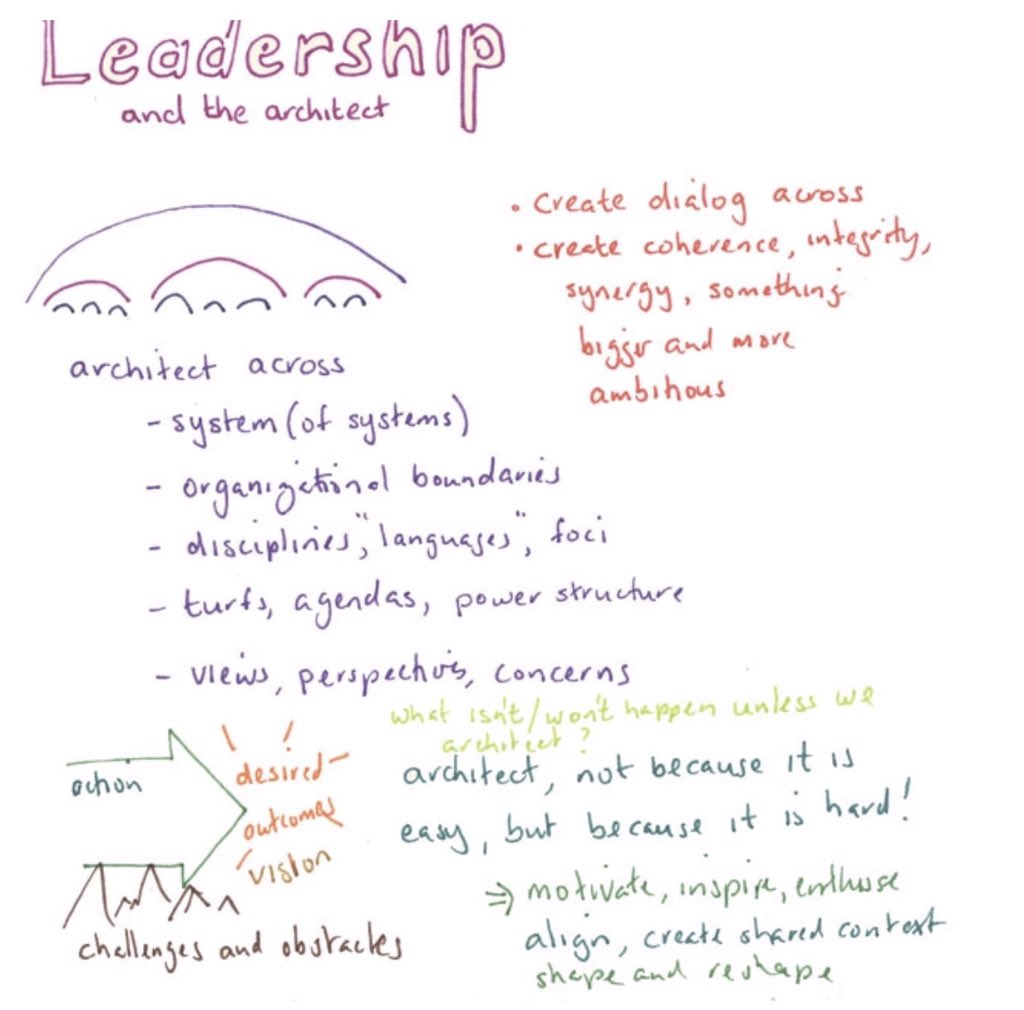 Leadership
and the architect
• create dialog across
• create coherence, integrity,
synergy, something
bigger and more
ambitious
architect across
- system (of systems)
- organizational boundaries
- disciplines, "languages", foci
- turfs, agendas, power structure
- views, perspectives, concerns
what isn't/won't happen unless we
architect?
architect, not because it is
easy, but because it is hard!
action
desired
outcomes
vision
challenges and obstacles
⇒ motivate, inspire, enthuse
align, create shared context
shape and reshape